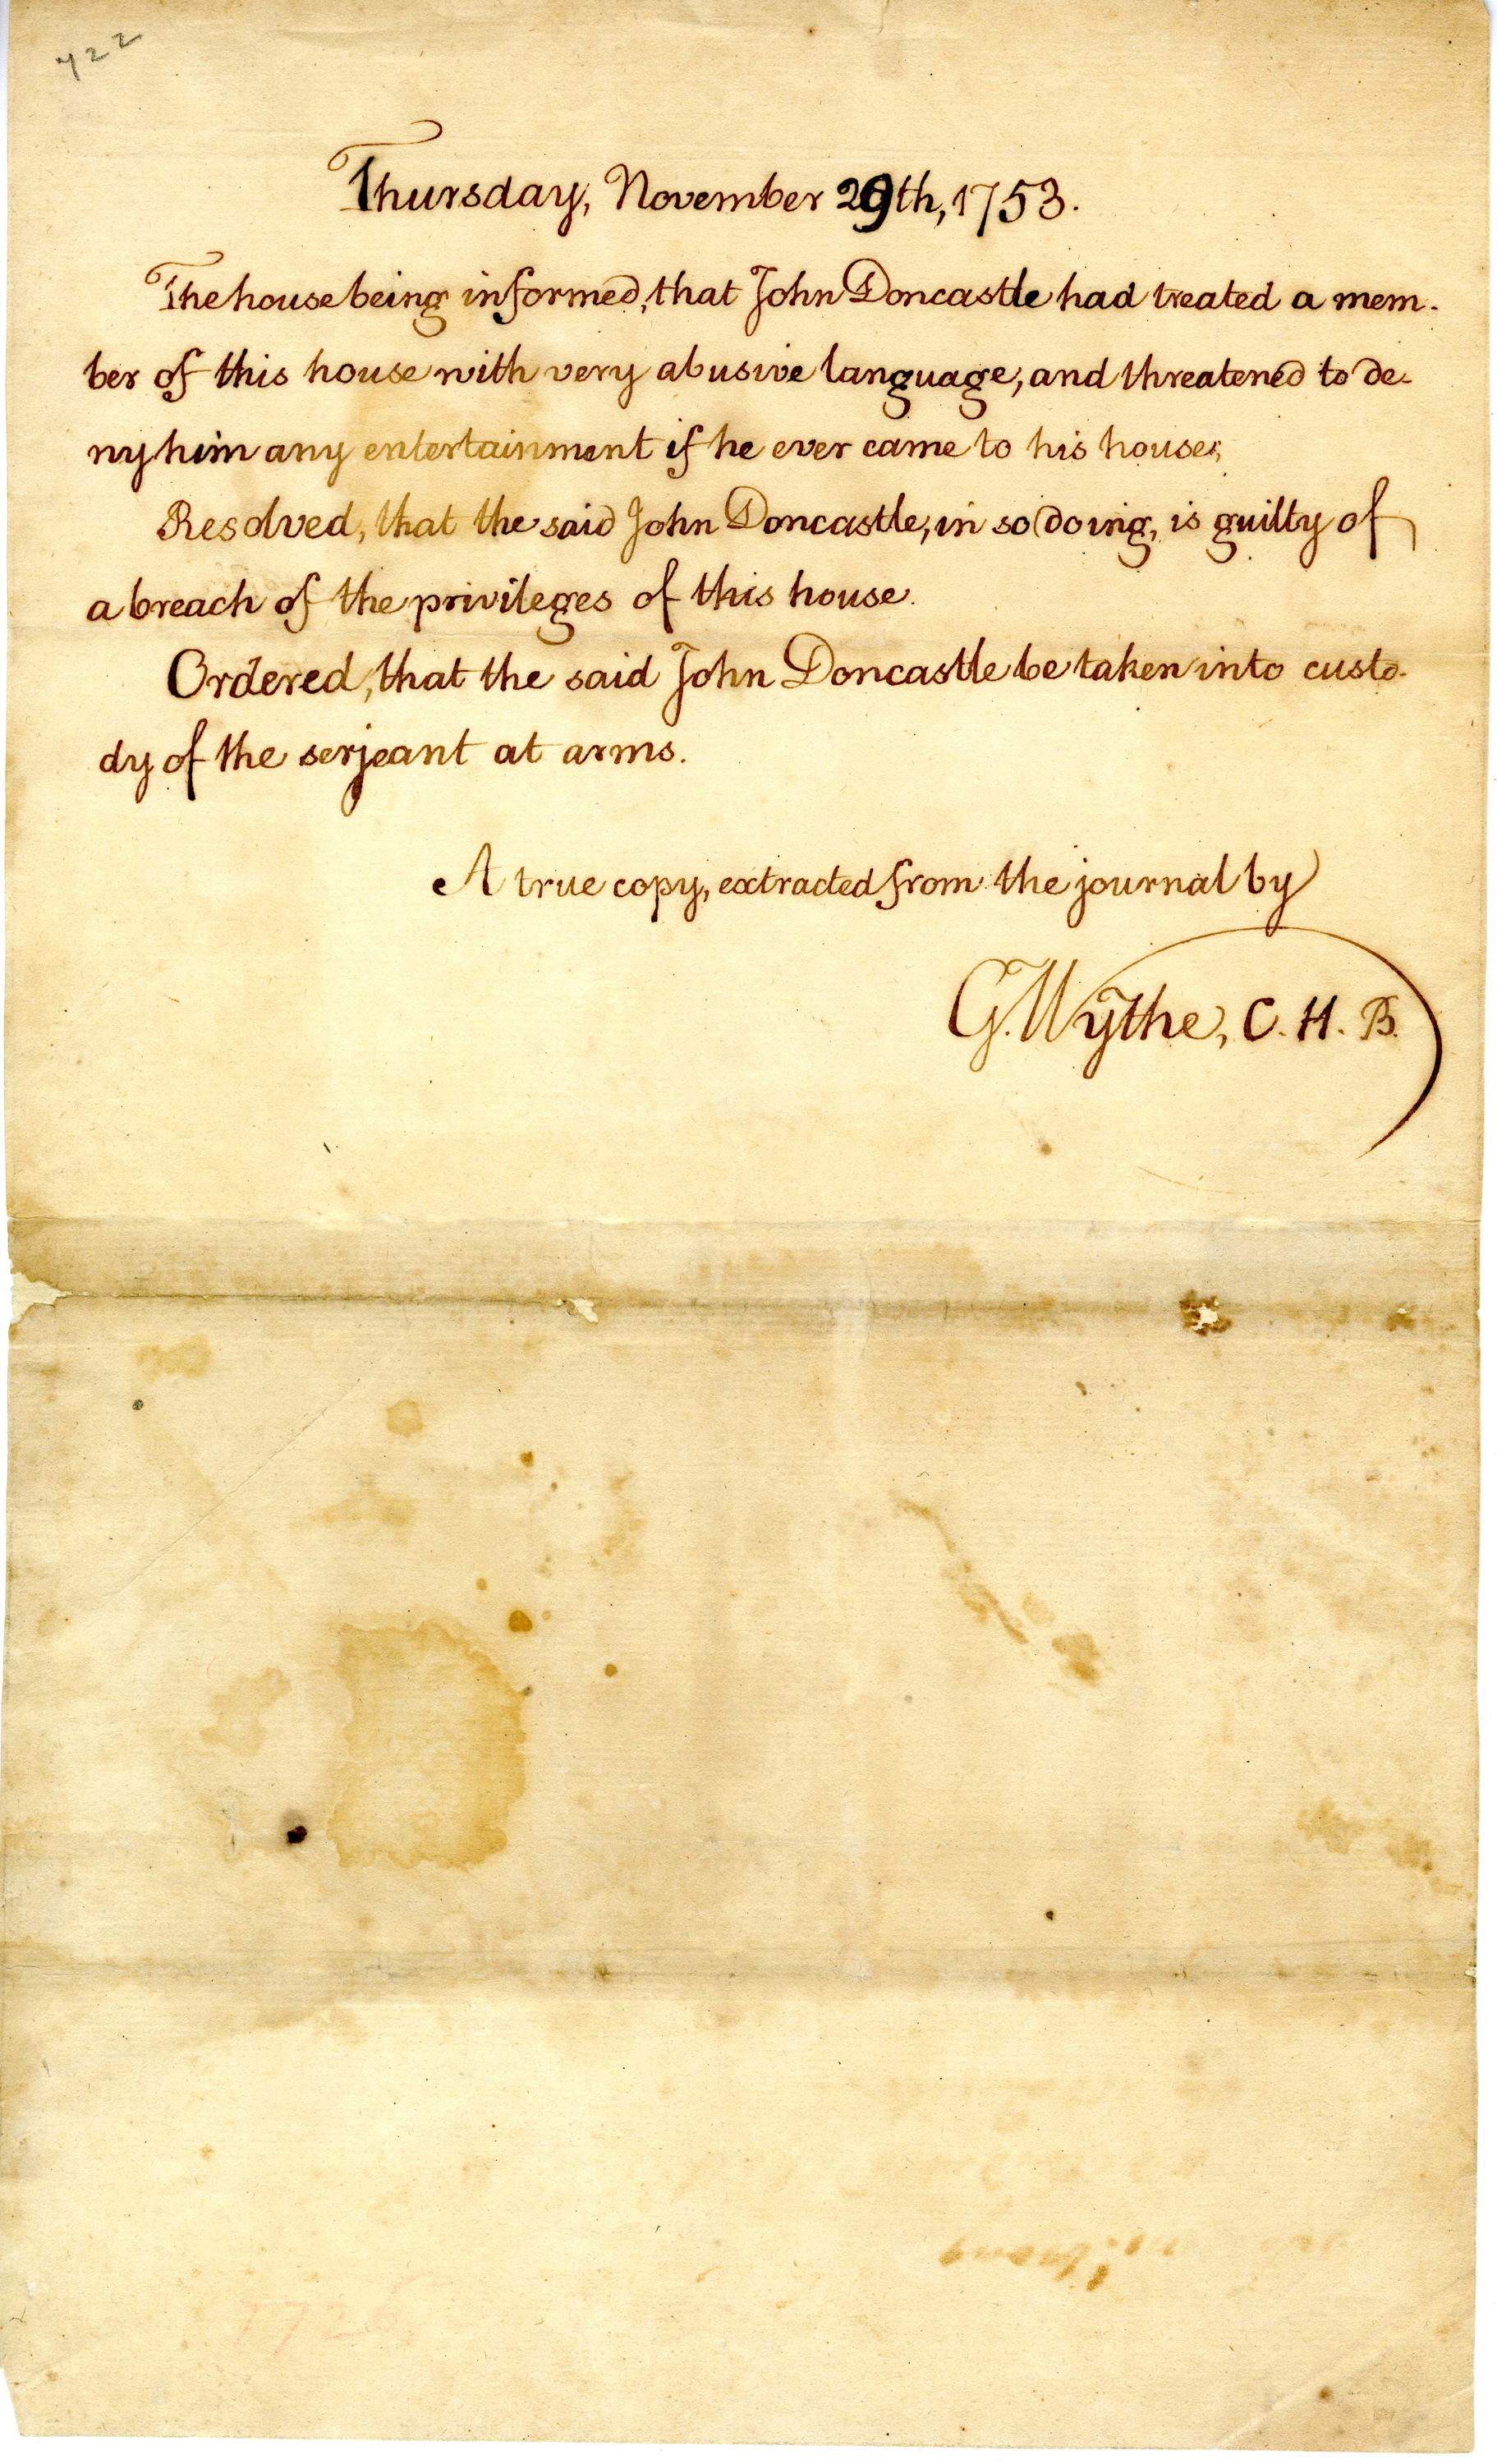 722
Thursday, November 29th, 1753.
The house being informed, that John Doncastle had treated a mem-
ber of this house with very abusive language, and threatened to de-
ny him any entertainment if he ever came to his house;
Resolved, that the said John Doncastle, in so doing, is guilty of
a breach of the privileges of this house.
Ordered, that the said John Doncastle be taken into custo-
dy of the serjeant at arms.
A true copy, extracted from the journal by
G. Wythe, C. H. B.